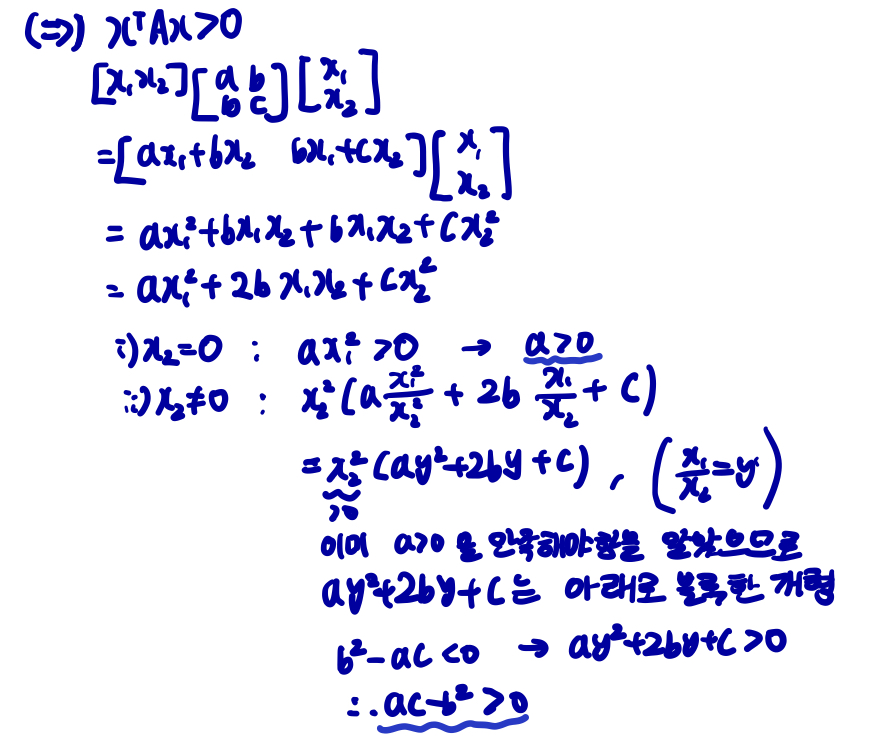 (⇒) xᵀAx>0
[x₁ x₂] [a b b c] [x₁ x₂]
= [ax₁+bx₂ bx₁+cx₂] [x₁ x₂]
= ax₁²+bx₁x₂+bx₁x₂+cx₂²
= ax₁²+2bx₁x₂+cx₂²
i) x₂=0 : ax₁²>0 → a>0
ii) x₂≠0 : x₂²(a x₁²/x₂² + 2b x₁/x₂ + c)
= x₂²(ay²+2by+c) , (x₁/x₂=y)
>0
이미 a>0 을 만족해야함을 알았으므로
ay²+2by+c는 아래로 볼록한 개형
b²-ac<0 → ay²+2by+c>0
∴ ac-b²>0